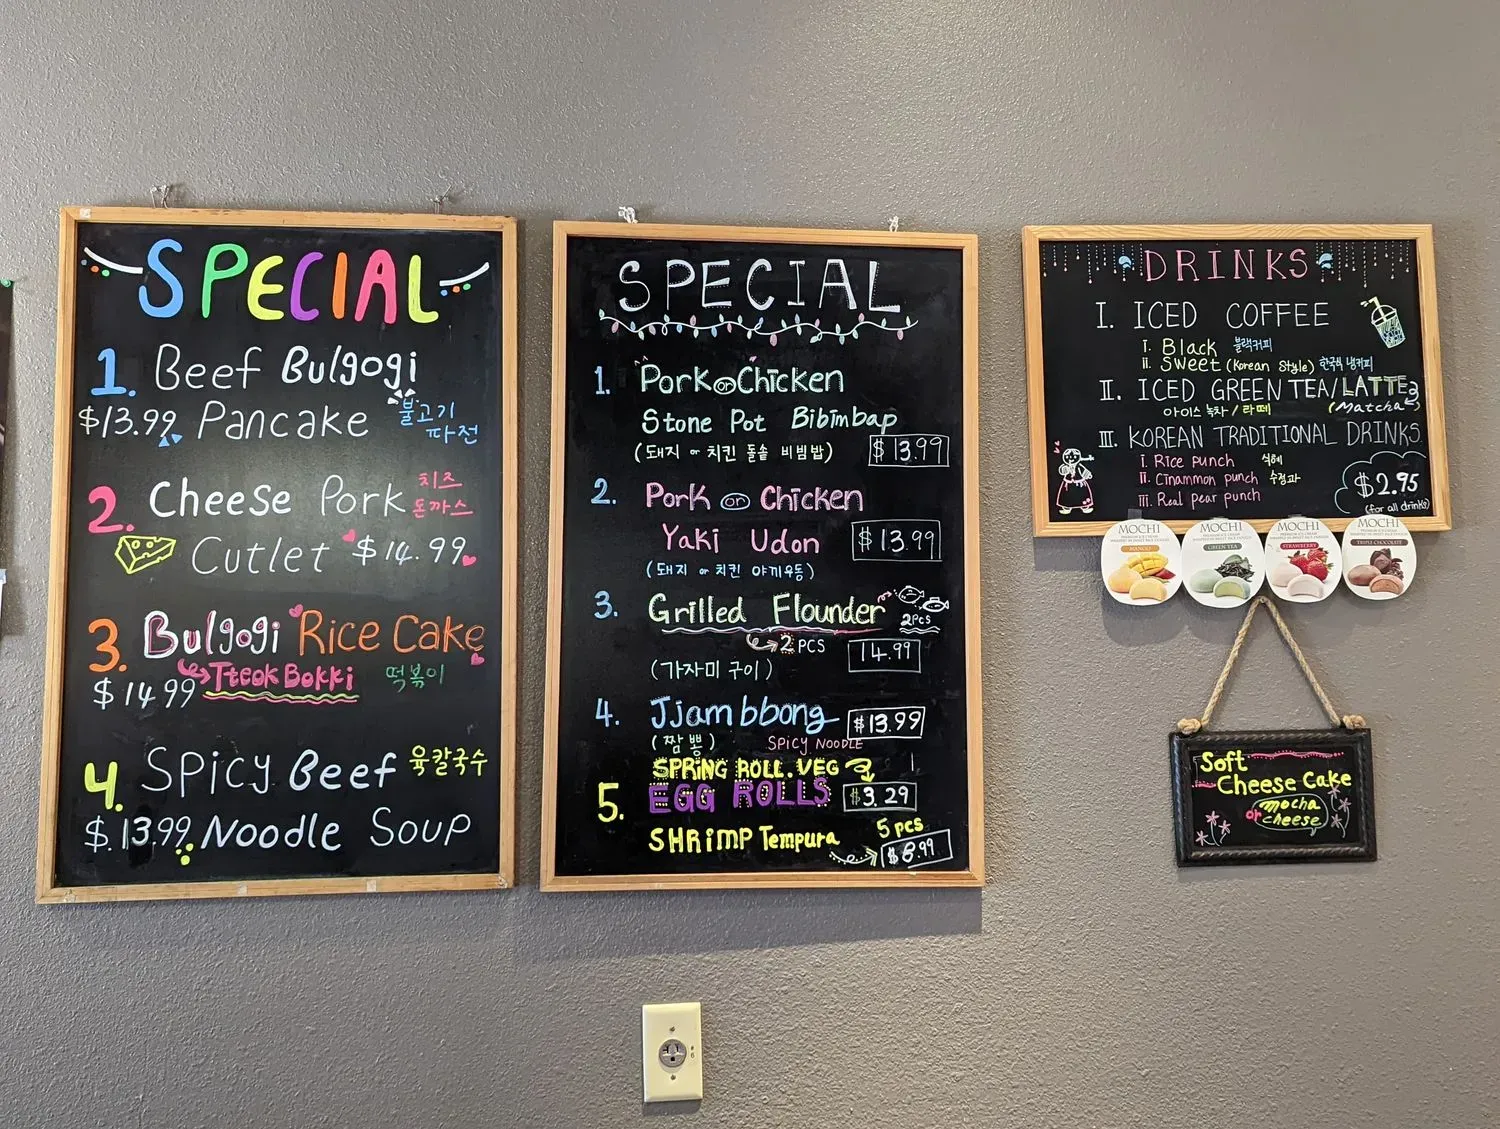 SPECIAL
1. Beef Bulgogi
$13.99 Pancake 불고기
파전
2. Cheese Pork 치즈
돈까스
Cutlet $14.99
3. Bulgogi Rice Cake
Tteok Bokki 떡볶이
$14.99
4. Spicy Beef 육칼국수
$.13.99 Noodle Soup
SPECIAL
1. Pork or Chicken
Stone Pot Bibimbap
(돼지 or 치킨 돌솥 비빔밥) $13.99
2. Pork or Chicken
Yaki Udon $13.99
(돼지 or 치킨 야끼우동)
3. Grilled Flounder 2pcs
2 PCS 14.99
(가자미 구이)
4. Jjambbong $13.99
(짬뽕) SPICY NOODLE
SPRING ROLL.VEG
5. EGG ROLLS $3.29
SHRIMP Tempura 5 pcs
DRINKS
I. ICED COFFEE
i. Black 블랙커피
ii. Sweet (Korean Style) 한국식 냉커피
II. ICED GREEN TEA/LATTE
아이스 녹차/라떼 (Matcha)
III. KOREAN TRADITIONAL DRINKS
i. Rice punch 식혜
ii. Cinammon punch 수정과
iii. Real pear punch
$2.95
(for all drinks)
MOCHI
MANGO
MOCHI
GREEN TEA
MOCHI
STRAWBERRY
MOCHI
TRIPLE CHOCOLATE
Soft
Cheese Cake
mocha
or cheese